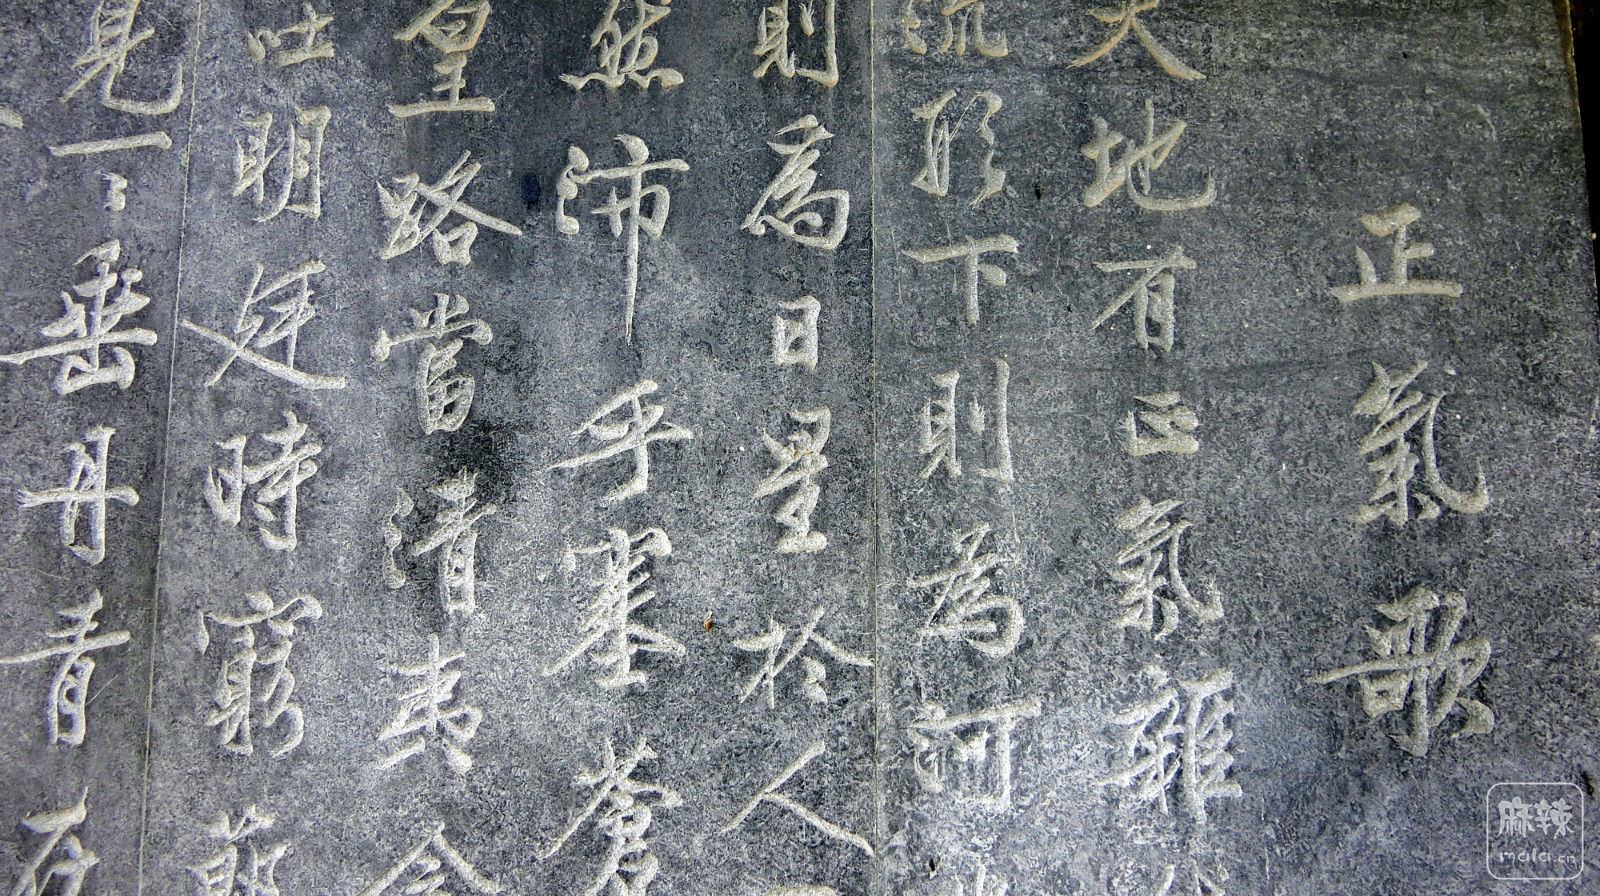 正氣歌
天地有正氣雜
流形下則為河
則為日星於人
然沛乎塞蒼
皇路當清夷含
吐明廷時窮節
見一一垂丹青在
麻辣
mala.cn